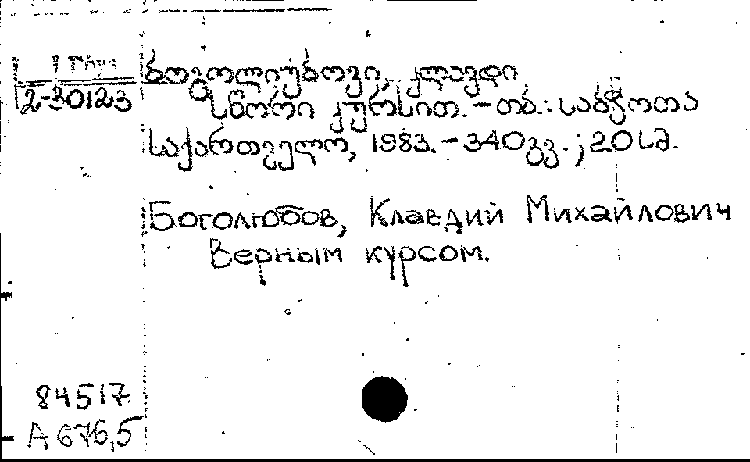 ბოგოლიუბოვი, კლავდი
2-30123
სწორი კურსით. - თბ.: საბჭოთა
საქართველო, 1983. - 340გვ.; 20სმ.
Боголюбов, Клавдий Михайлович
Верным курсом.
84517
А 676,5